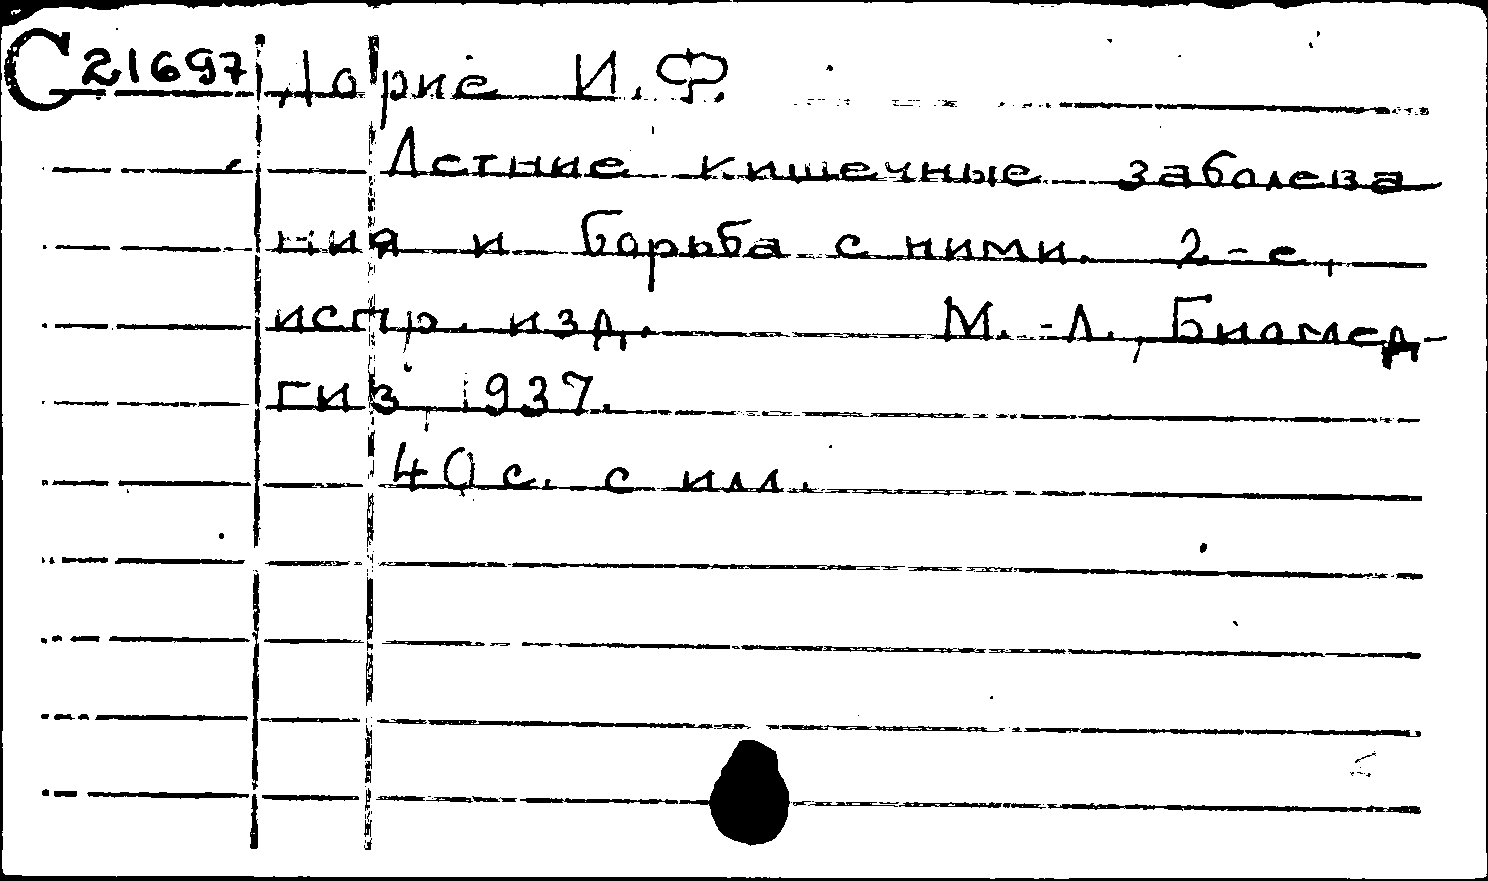 С21697 Лорие И.Ф.
Летние кишечные заболева
ния и борьба с ними. 2-е,
испр. изд. М.-Л., Биомед-
гиз, 1937.
40 с. с илл.